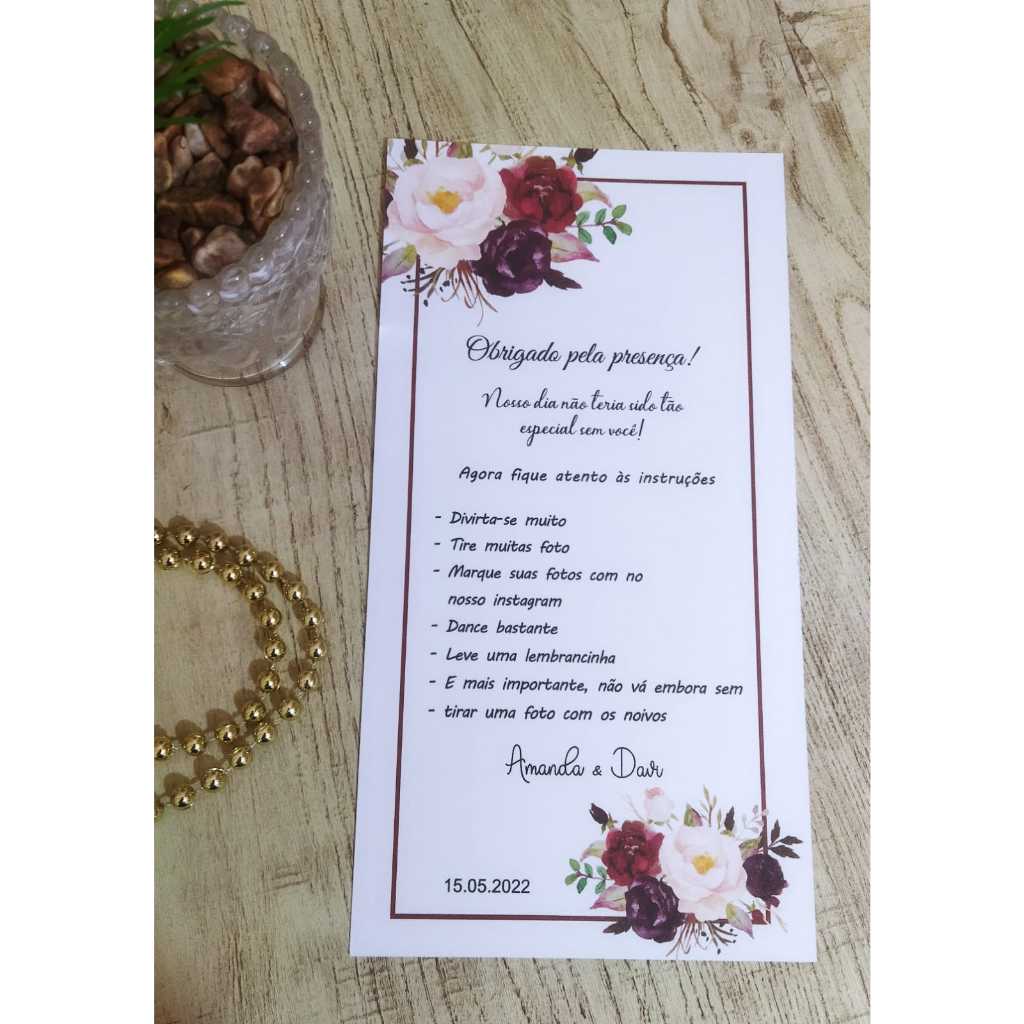 Obrigado pela presença!
Nosso dia não teria sido tão
especial sem você!
Agora fique atento às instruções
- Divirta-se muito
- Tire muitas foto
- Marque suas fotos com no
nosso instagram
- Dance bastante
- Leve uma lembrancinha
- E mais importante, não vá embora sem
- tirar uma foto com os noivos
Amanda & Davi
15.05.2022